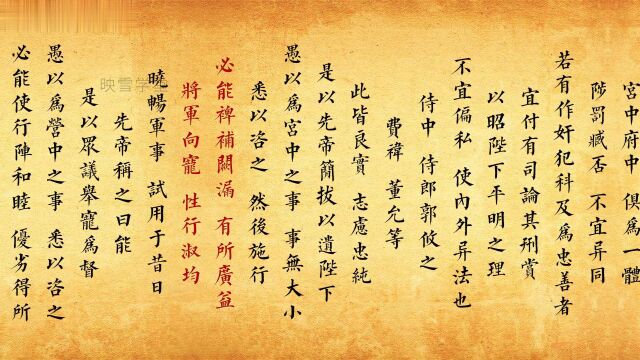 宮中府中 俱爲一體
陟罰臧否 不宜异同
若有作奸犯科及爲忠善者
宜付有司論其刑賞
以昭陛下平明之理
不宜偏私 使內外异法也
侍中 侍郎郭攸之
費禕 董允等
此皆良實 志慮忠純
是以先帝簡拔以遺陛下
愚以爲宮中之事 事無大小
悉以咨之 然後施行
必能裨補闕漏 有所廣益
將軍向寵 性行淑均
曉暢軍事 試用于昔日
先帝稱之曰能
是以眾議舉寵爲督
愚以爲營中之事 悉以咨之
必能使行陣和睦 優劣得所
映雪学